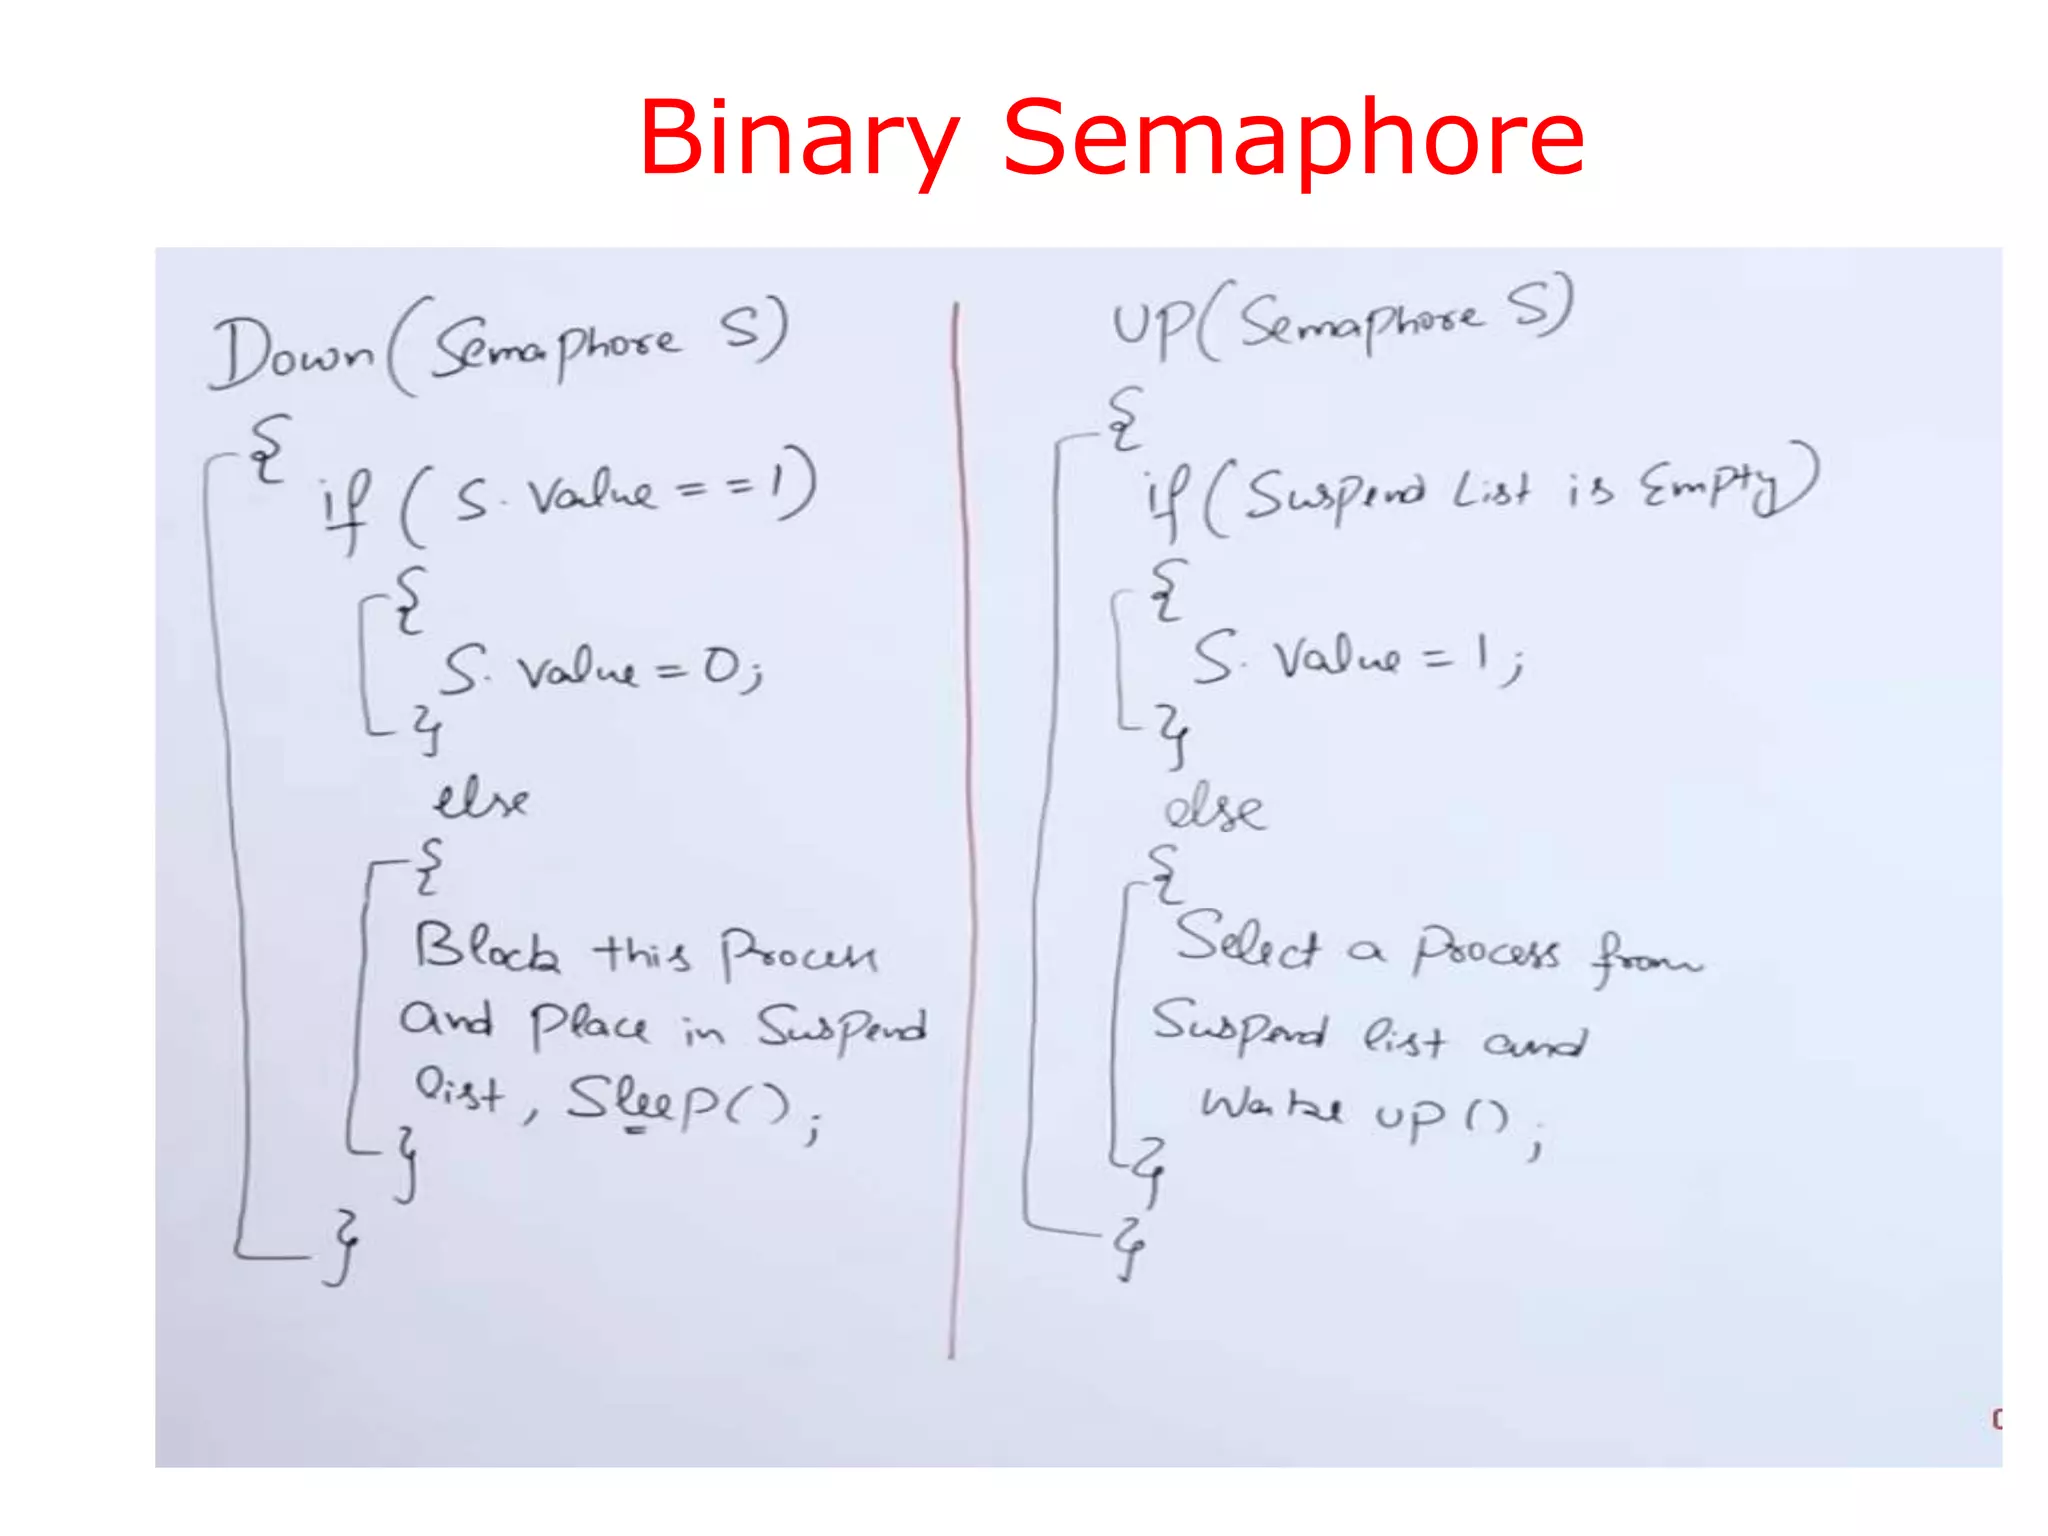 Binary Semaphore
Down(Semaphore S)
{
if (S.Value==1)
{
S.Value=0;
}
else
{
Block this Process
and Place in Suspend
list, Sleep();
}
}
UP(Semaphore S)
{
if(Suspend List is Empty)
{
S.Value=1;
}
else
{
Select a Process from
Suspend list and
Wake up();
}
}